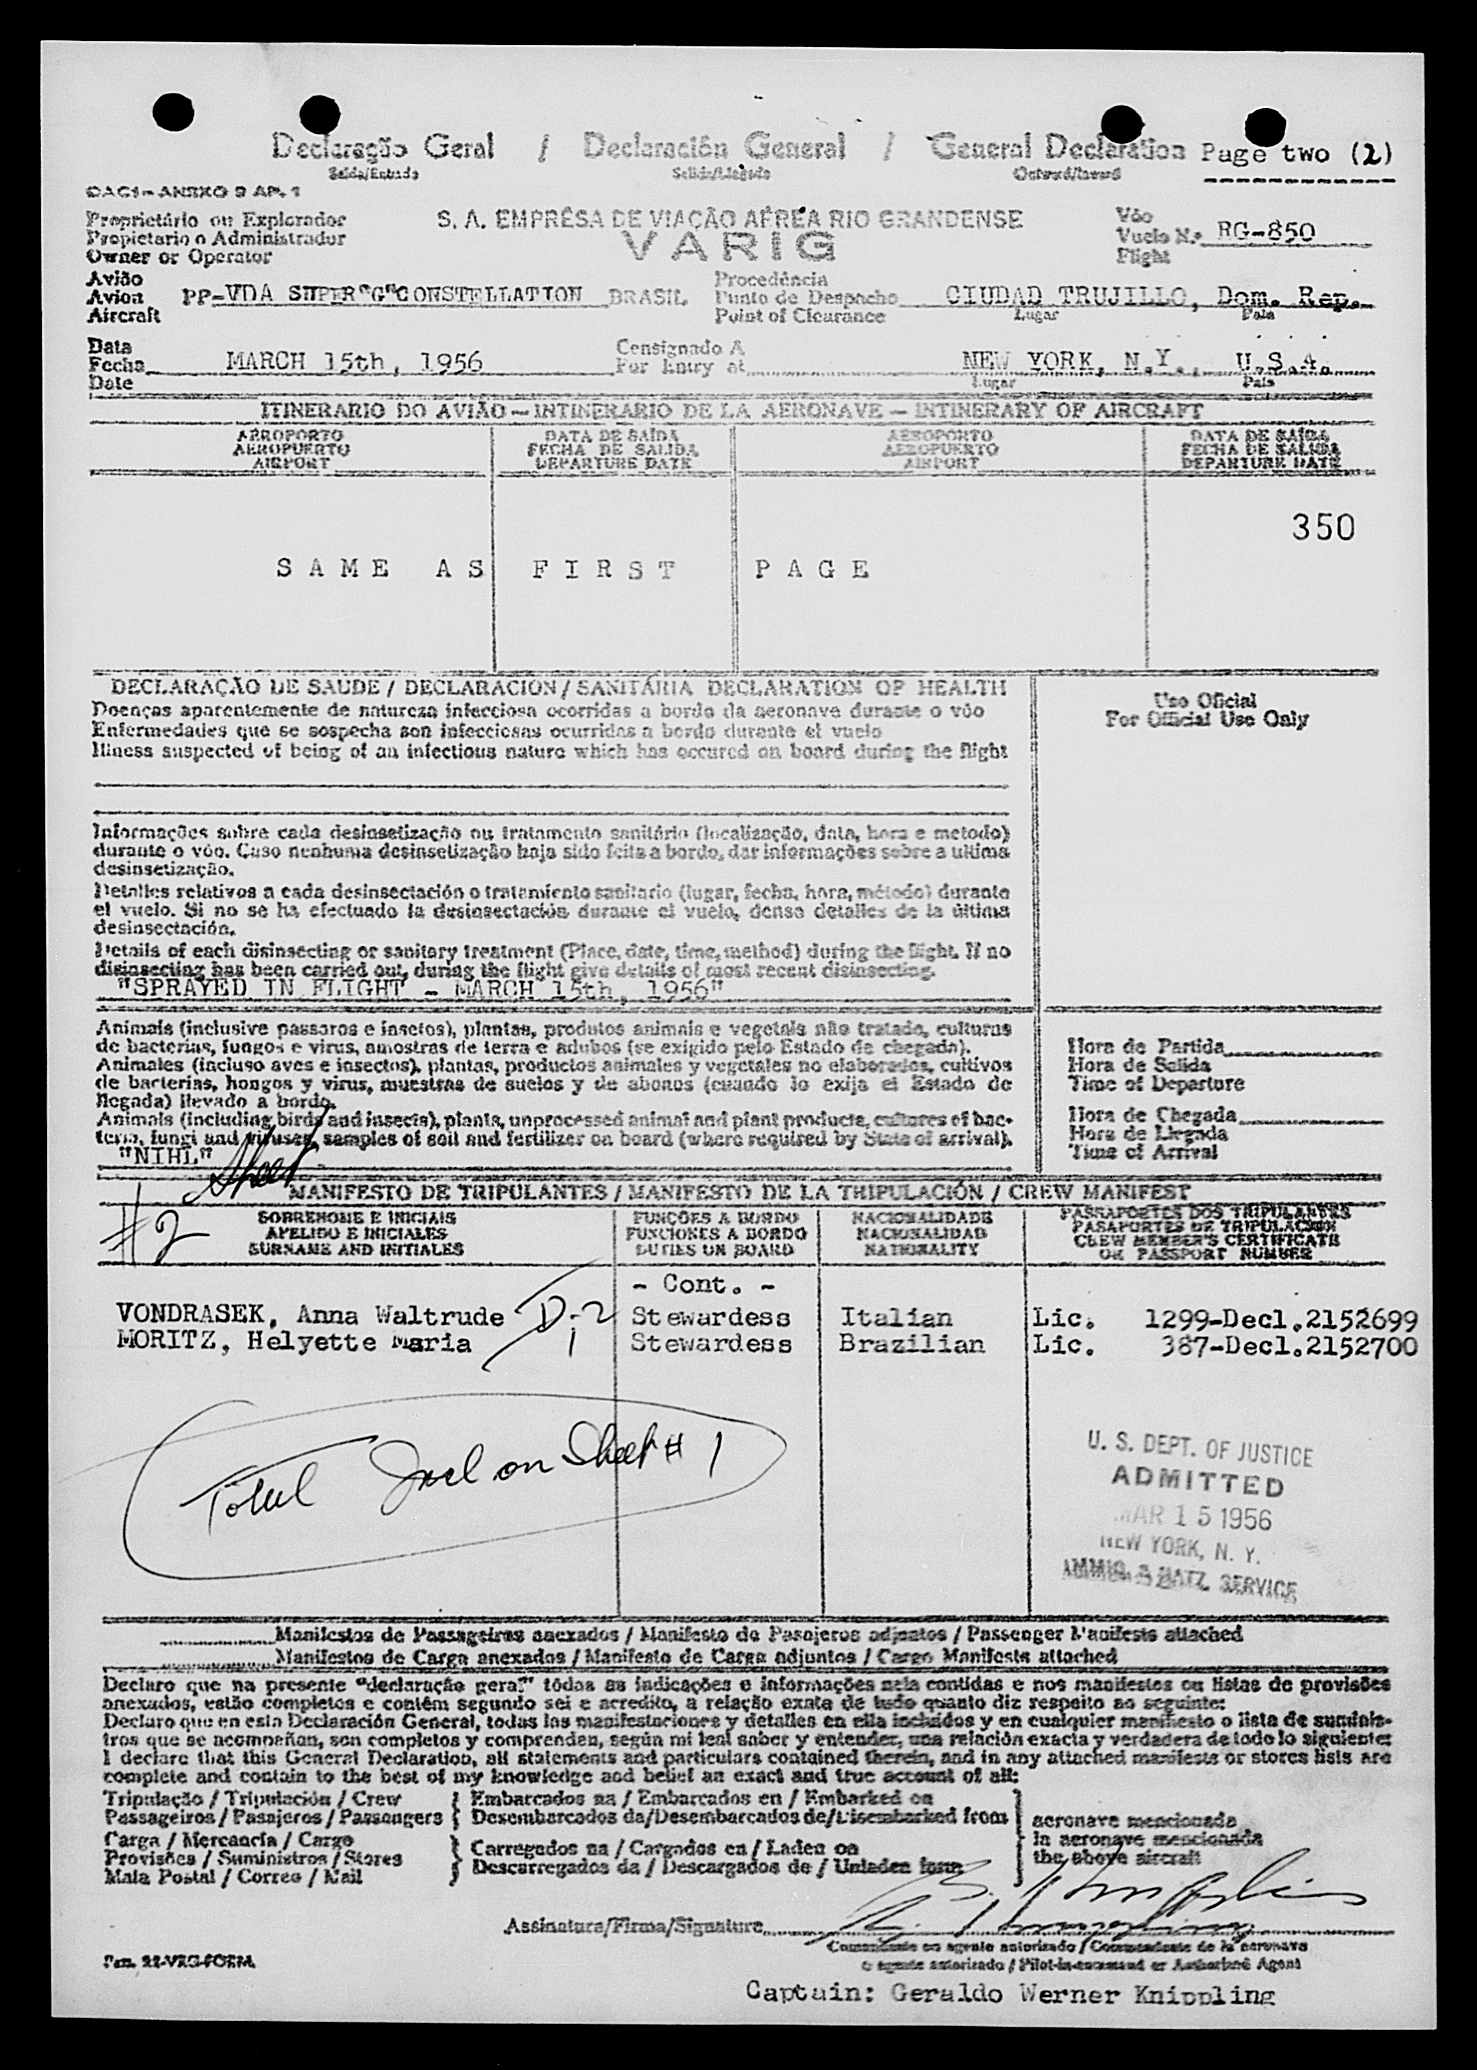 Declaração Geral / Declaración General / General Declaration Page two (2)
Saída/Entrada Salida/Llegada Outward/Inward
OACI - ANEXO 9 AP. 1
Proprietário ou Explorador
Propietario o Administrador
Owner or Operator
S. A. EMPRÊSA DE VIAÇÃO AÉREA RIO GRANDENSE
VARIG
Vôo
Vuelo N.º RG-850
Flight
Avião
Avion PP-VDA SUPER"G"CONSTELLATION BRASIL
Aircraft
Procedência
Punto de Despacho CIUDAD TRUJILLO, Dom. Rep.
Point of Clearance Lugar País
Data
Fecha MARCH 15th, 1956
Date
Consignado A
For Entry at NEW YORK, N.Y., U.S.A.
Lugar País
ITINERARIO DO AVIÃO — INTINERARIO DE LA AERONAVE — INTINERARY OF AIRCRAFT
AEROPORTO DATA DE SAÍDA AEROPORTO DATA DE SAÍDA
AEROPUERTO FECHA DE SALIDA AEROPUERTO FECHA DE SALIDA
AIRPORT DEPARTURE DATE AIRPORT DEPARTURE DATE
350
SAME AS FIRST PAGE
DECLARAÇÃO DE SAUDE / DECLARACION / SANITÁRIA DECLARATION OF HEALTH
Doenças aparentemente de natureza infecciosa ocorridas a bordo da aeronave durante o vôo
Enfermedades que se sospecha son infecciosas ocurridas a bordo durante el vuelo
Illness suspected of being of an infectious nature which has occured on board during the flight
Uso Oficial
For Official Use Only
Informações sobre cada desinsetização ou tratamento sanitário (localização, data, hora e metodo)
durante o vôo. Caso nenhuma desinsetização haja sido feita a bordo, dar informações sobre a ultima
desinsetização.
Detalles relativos a cada desinsectación o tratamiento sanitario (lugar, fecha, hora, método) durante
el vuelo. Si no se ha efectuado la desinsectación durante el vuelo, dense detalles de la última
desinsectación.
Details of each disinsecting or sanitory treatment (Place, date, time, method) during the flight. If no
disinsecting has been carried out, during the flight give details of most recent disinsecting.
"SPRAYED IN FLIGHT - MARCH 15th, 1956"
Animais (inclusive passaros e insetos), plantas, produtos animais e vegetais não tratado, culturas
de bacterias, fungos e virus, amostras de terra e adubos (se exigido pelo Estado de chegada).
Animales (incluso aves e insectos), plantas, productos animales y vegetales no elaborados, cultivos
de bacterias, hongos y virus, muestras de suelos y de abonos (cuando lo exija el Estado de
llegada) llevado a bordo.
Animals (including birds and insects), plants, unprocessed animal and plant products, cultures of bac-
teria, fungi and viruses, samples of soil and fertilizer on board (where required by State of arrival).
"NIHL"
Hora de Partida
Hora de Salida
Time of Departure
Hora de Chegada
Hora de Llegada
Time of Arrival
Sheet
#2
MANIFESTO DE TRIPULANTES / MANIFESTO DE LA TRIPULACIÓN / CREW MANIFEST
SOBRENOME E INICIAIS FUNÇÕES A BORDO NACIONALIDADE PASSAPORTES DOS TRIPULANTES
APELIDO E INICIALES FUNCIONES A BORDO NACIONALIDAD PASAPORTES DE TRIPULACIÓN
SURNAME AND INITIALES DUTIES ON BOARD NATIONALITY CREW MEMBER'S CERTIFICATE
OR PASSPORT NUMBER
- Cont. -
VONDRASEK, Anna Waltrude D-2 Stewardess Italian Lic. 1299-Decl.2152699
MORITZ, Helyette Maria 1 Stewardess Brazilian Lic. 387-Decl.2152700
Total Incl on Sheet # 1
U. S. DEPT. OF JUSTICE
ADMITTED
MAR 15 1956
NEW YORK, N. Y.
IMMIG. & NATZ. SERVICE
Manifestos de Passageiros anexados / Manifesto de Pasajeros adjuntos / Passenger Manifests attached
Manifestos de Carga anexados / Manifesto de Carga adjuntos / Cargo Manifests attached
Declaro que na presente "declaração geral" tôdas as indicações e informações nela contidas e nos manifestos ou listas de provisões
anexados, estão completos e contêm segundo sei e acredito, a relação exata de tudo quanto diz respeito ao seguinte:
Declaro que en esta Declaración General, todas las manifestaciones y detalles en ella incluidos y en cualquier manifiesto o lista de suminis-
tros que se acompañan, son completos y comprenden, según mi leal saber y entender, una relación exacta y verdadera de todo lo siguiente:
I declare that this General Declaration, all statements and particulars contained therein, and in any attached manifests or stores lists are
complete and contain to the best of my knowledge and belief an exact and true account of all:
Tripulação / Tripulación / Crew
Passageiros / Pasajeros / Passengers
Embarcados na / Embarcados en / Embarked on
Desembarcados da/Desembarcados de/Disembarked from
Carga / Mercancía / Cargo
Provisões / Suministros / Stores
Mala Postal / Correo / Mail
Carregados na / Cargados en / Laden on
Descarregados da / Descargados de / Unladen from
aeronave mencionada
la aeronave mencionada
the above aircraft
Assinatura/Firma/Signature
Comandante ou agente autorizado / Comandante de la aeronave
o agente autorizado / Pilot-in-command or Authorized Agent
Captain: Geraldo Werner Knippling